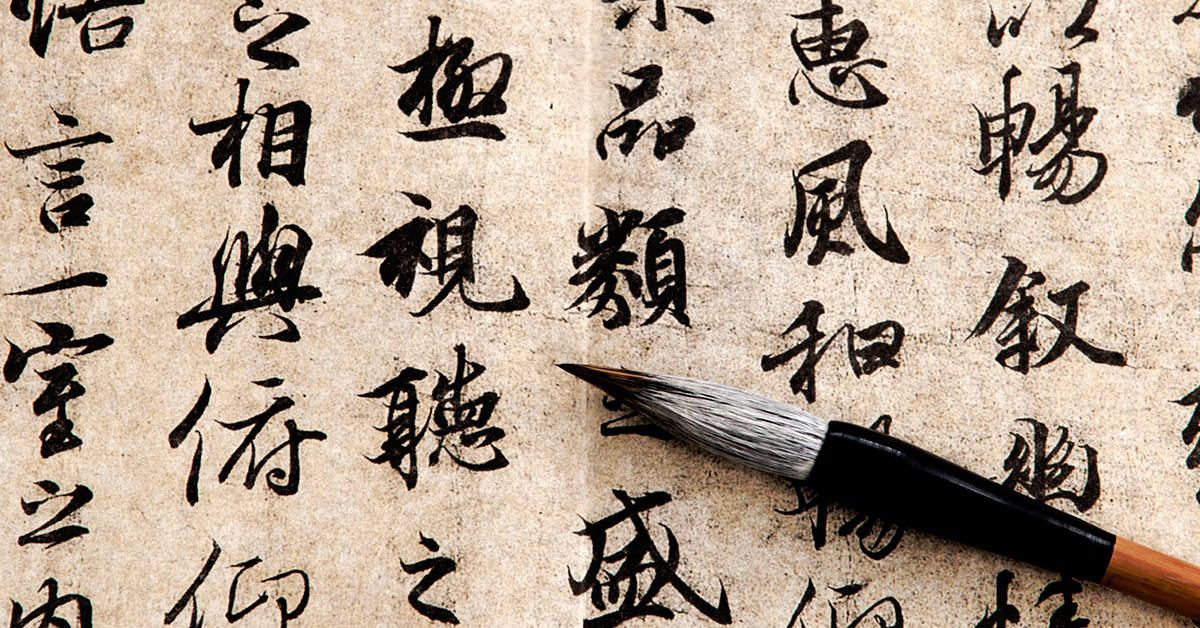 以暢叙幽情
惠風和暢仰
品類之盛
極視聽之
之相與俯仰
悟言一室之内